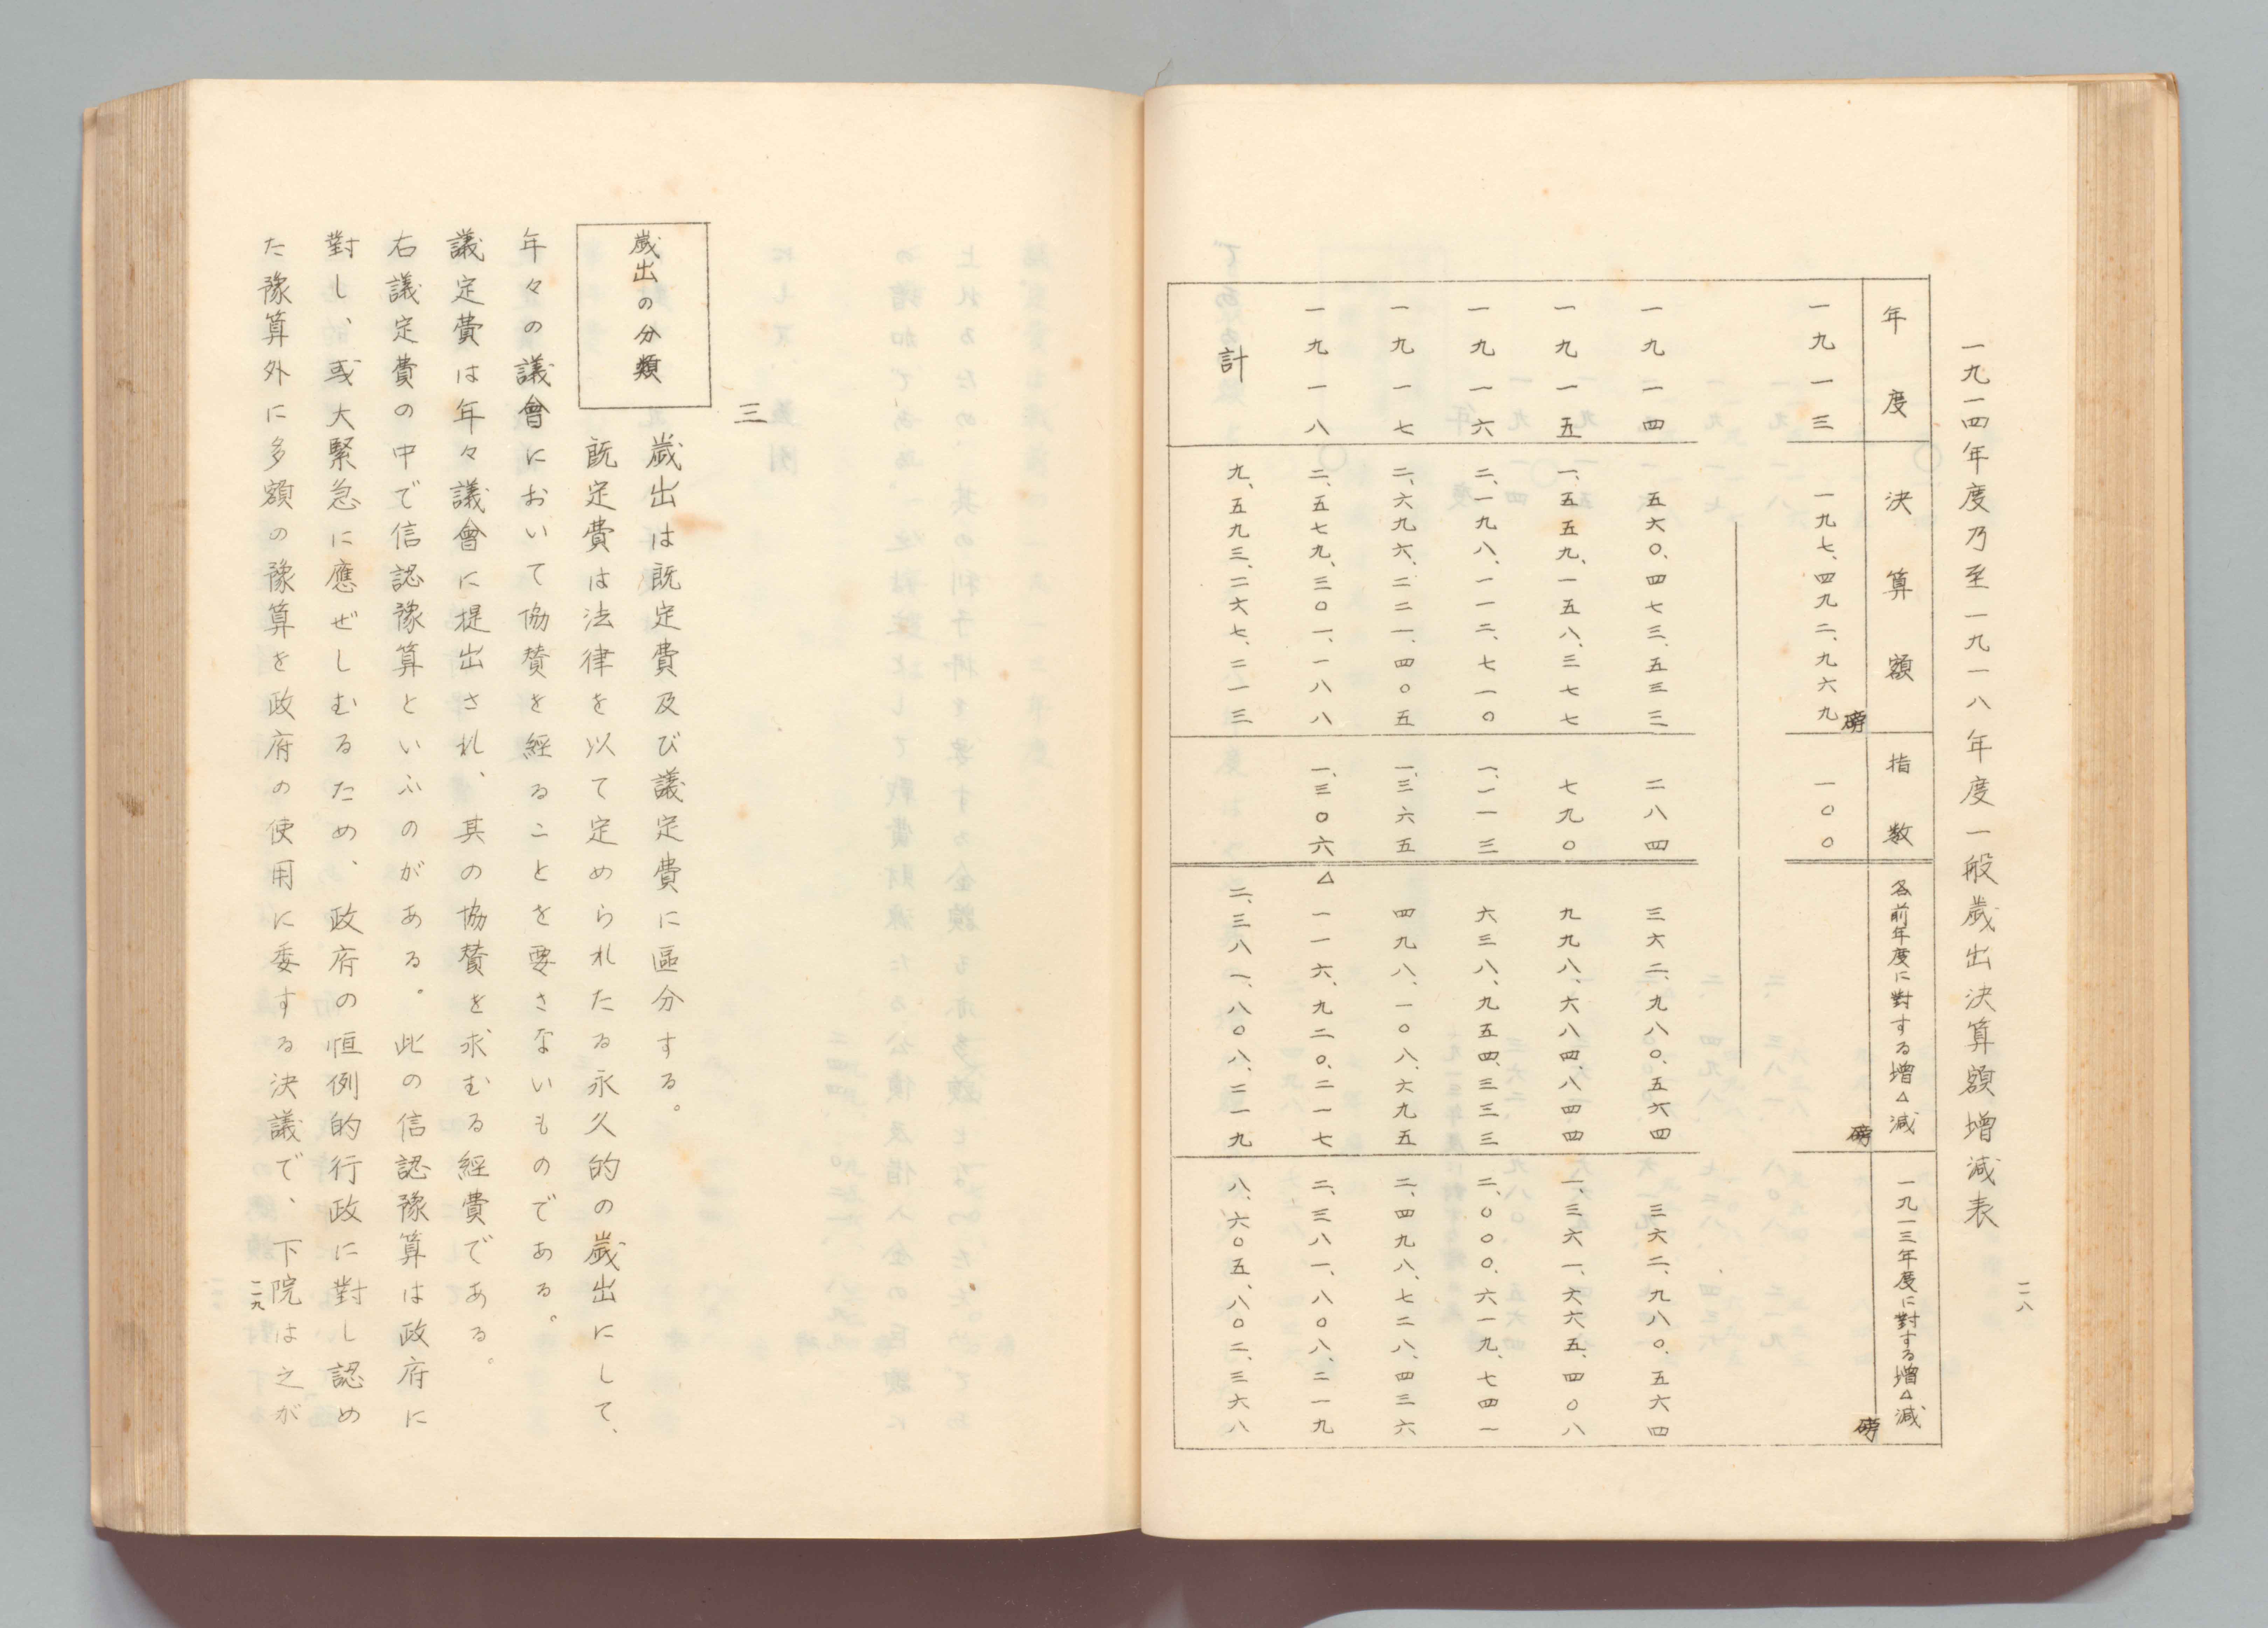 一九一四年度乃至一九一八年度一般歳出決算額増減表
二八
年度 決算額 指数 各前年度に對する増△減 一九一三年度に對する増△減
一九一三 一九七、四九二、九六九磅 一〇〇 磅 磅
一九一四 五六〇、四七三、五三三 二八四 三六二、九八〇、五六四 三六二、九八〇、五六四
一九一五 一、五五九、一五八、三七七 七九〇 九九八、六八四、八四四 一、三六一、六六五、四〇八
一九一六 二、一九八、一一二、七一〇 一、一一三 六三八、九五四、三三三 二、〇〇〇、六一九、七四一
一九一七 二、六九六、二二一、四〇五 一、三六五 四九八、一〇八、六九五 二、四九八、七二八、四三六
一九一八 二、五七九、三〇一、一八八 一、三〇六 △一一六、九二〇、二一七 二、三八一、八〇八、二一九
計 九、五九三、二六七、二一三 二、三八一、八〇八、二一九 八、六〇五、八〇二、三六八
三
歳出の分類
歳出は既定費及び議定費に區分する。
既定費は法律を以て定められたる永久的の歳出にして、
年々の議會において協賛を経ることを要さないものである。
議定費は年々議會に提出され、其の協賛を求むる経費である。
右議定費の中で信認豫算といふのがある。此の信認豫算は政府に
對し、或大緊急に應ぜしむるため、政府の恒例的行政に對し認め
た豫算外に多額の豫算を政府の使用に委する決議で、下院は之が
二九